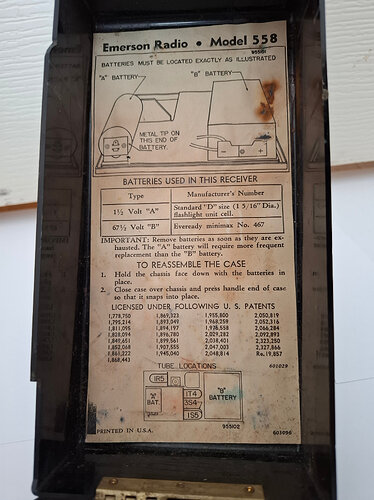 Emerson Radio • Model 558
955101
BATTERIES MUST BE LOCATED EXACTLY AS ILLUSTRATED
"A" BATTERY
"B" BATTERY
METAL TIP ON
THIS END OF
BATTERY.
- +
BATTERIES USED IN THIS RECEIVER
Type Manufacturer's Number
1½ Volt "A" Standard "D" size (1 5/16" Dia.)
flashlight unit cell.
67½ Volt "B" Eveready minimax No. 467
IMPORTANT: Remove batteries as soon as they are ex-
hausted. The "A" battery will require more frequent
replacement than the "B" battery.
TO REASSEMBLE THE CASE
1. Hold the chassis face down with the batteries in
place.
2. Close case over chassis and press handle end of case
so that it snaps into place.
LICENSED UNDER FOLLOWING U. S. PATENTS
1,778,750 1,869,323 1,955,800 2,050,819
1,795,214 1,893,049 1,968,259 2,052,316
1,811,095 1,894,197 2,066,284
1,828,094 1,896,780 2,029,282 2,092,893
1,849,651 1,899,561 2,038,401 2,323,250
1,852,068 1,907,555 2,047,003 2,327,866
1,861,222 1,945,040 2,048,814 Re. 19,857
1,868,443
601029
TUBE LOCATIONS
1R5
"A"
BAT.
1T4
3S4
1S5
"B"
BATTERY
955102
PRINTED IN U.S.A.
603096